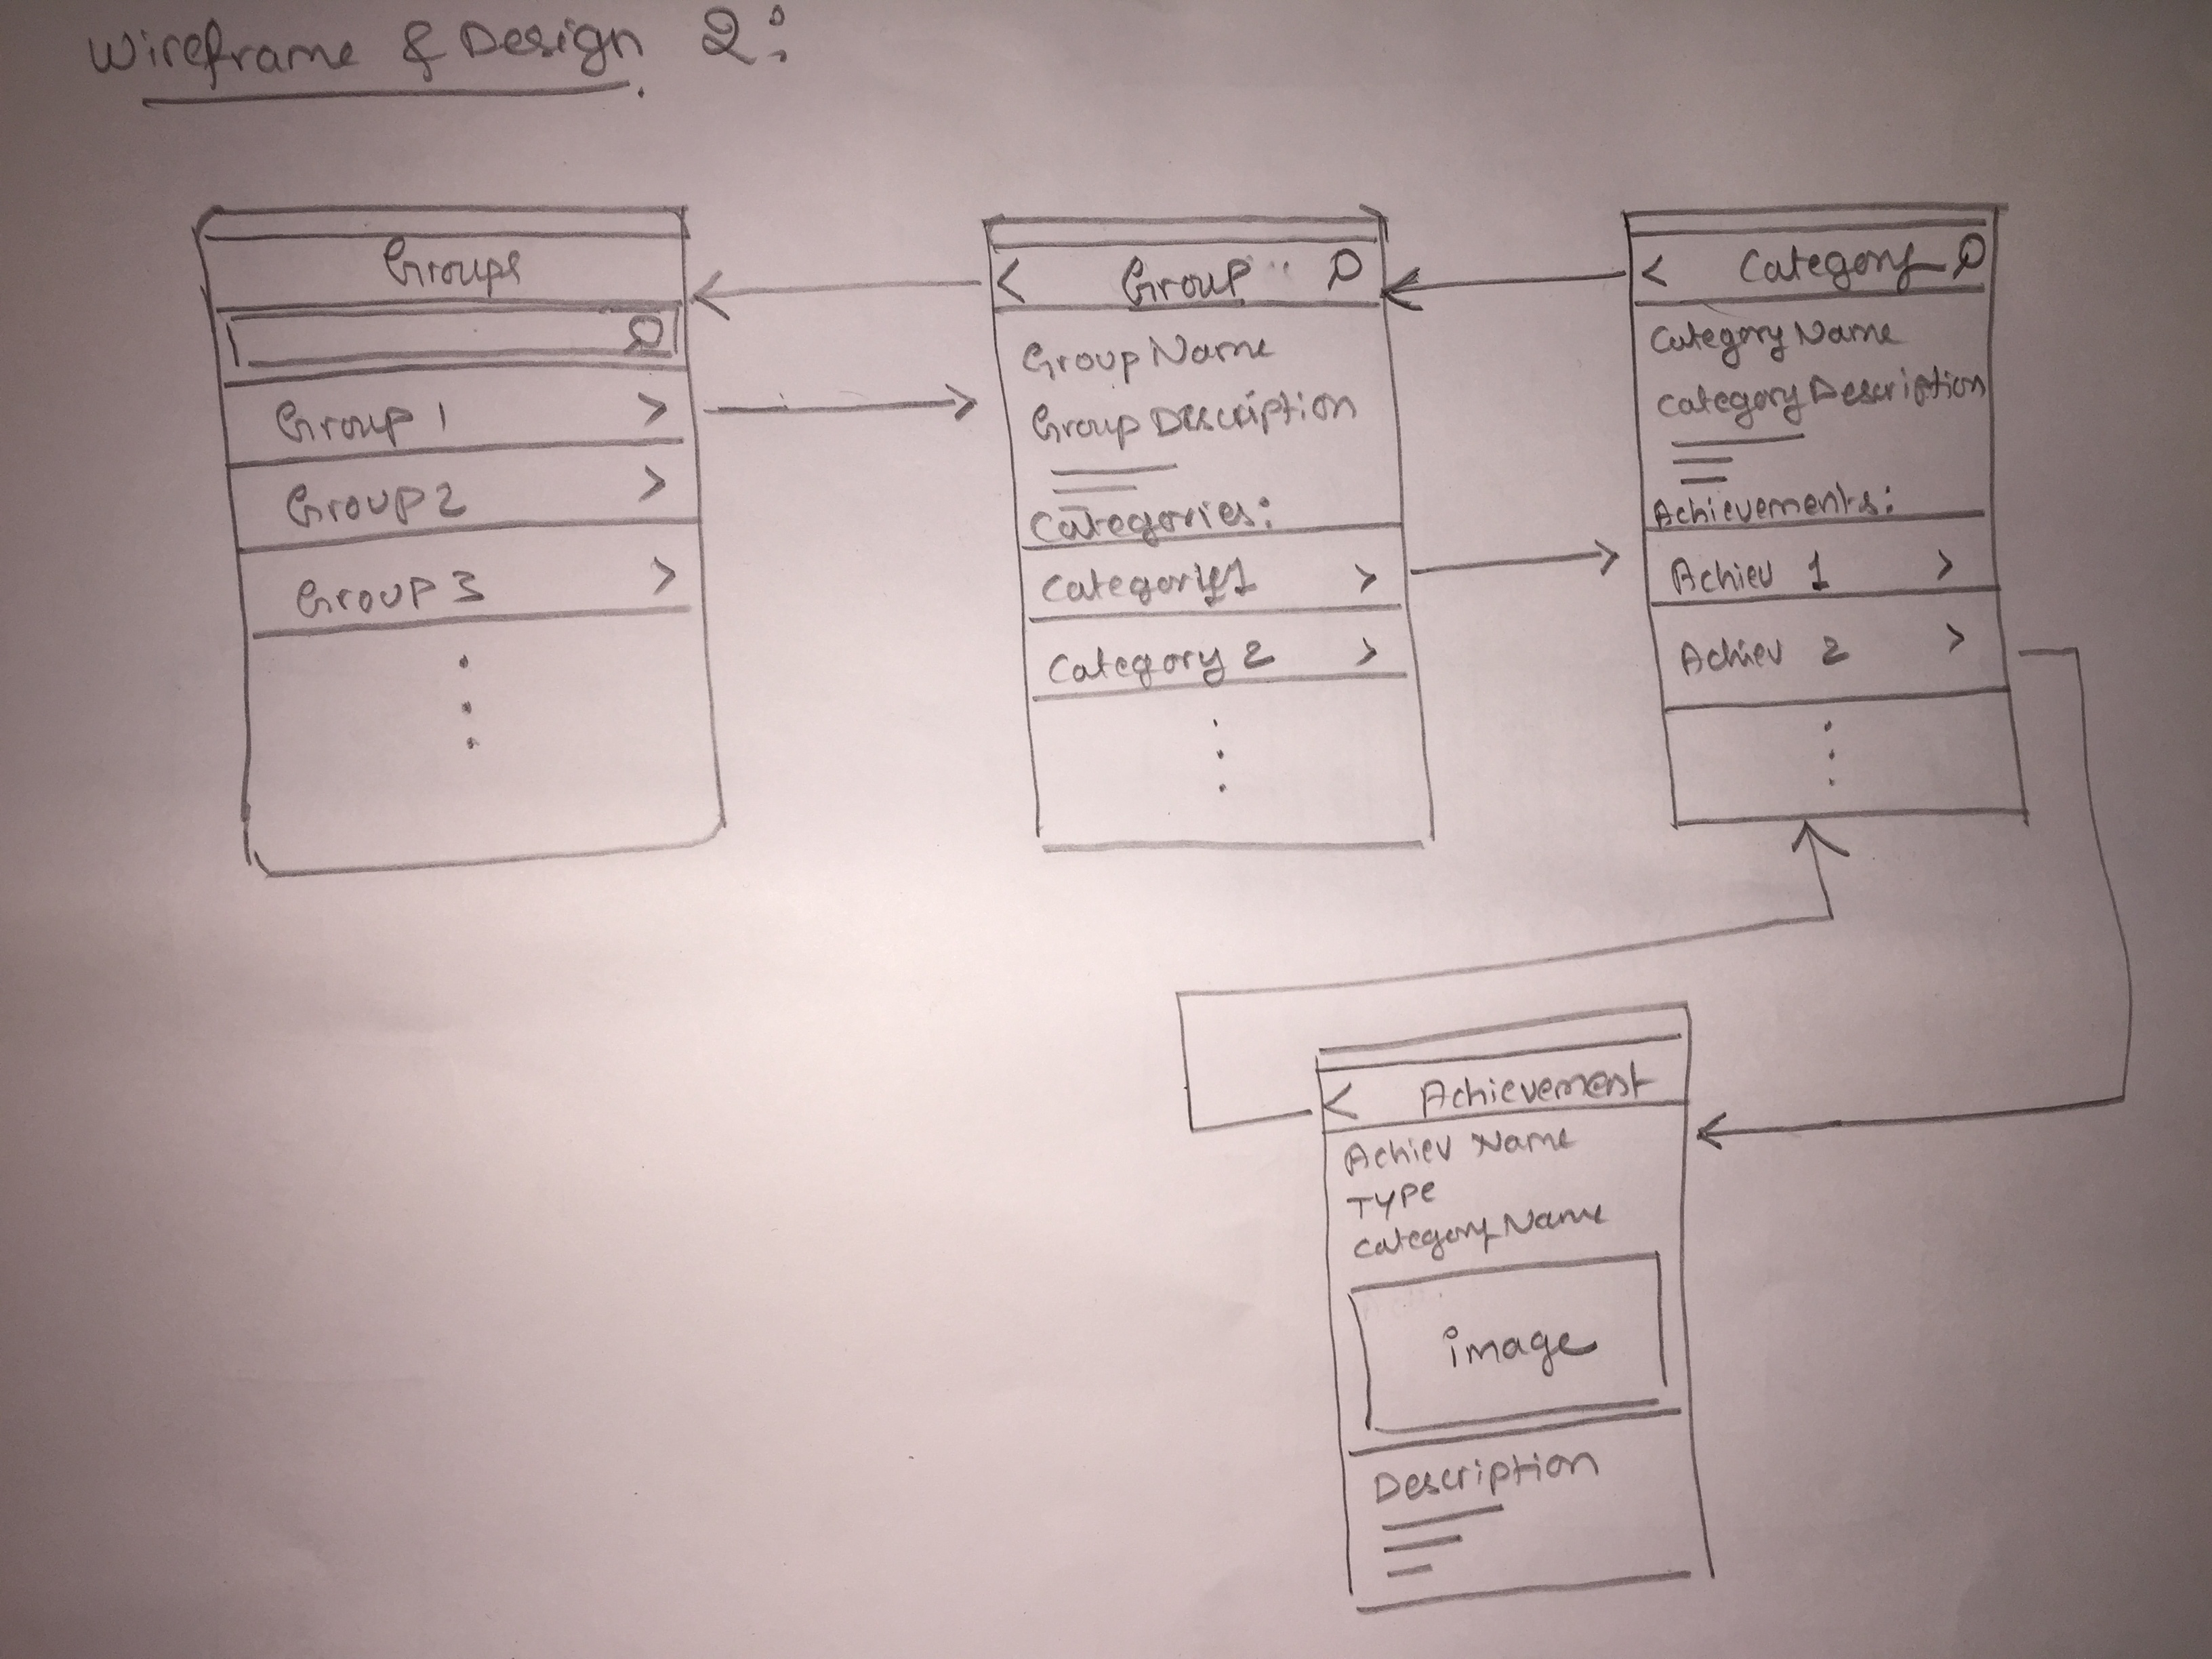 Wireframe & Design 2:
Groups
Group 1 >
Group 2 >
Group 3 >
< Group
Group Name
Group Description
Categories:
>
Category 2 >
< Category
Category Name
Category Description
Achievements:
Achiev 1 >
Achiev 2 >
< Achievement
Achiev Name
Type
Category Name
image
Description